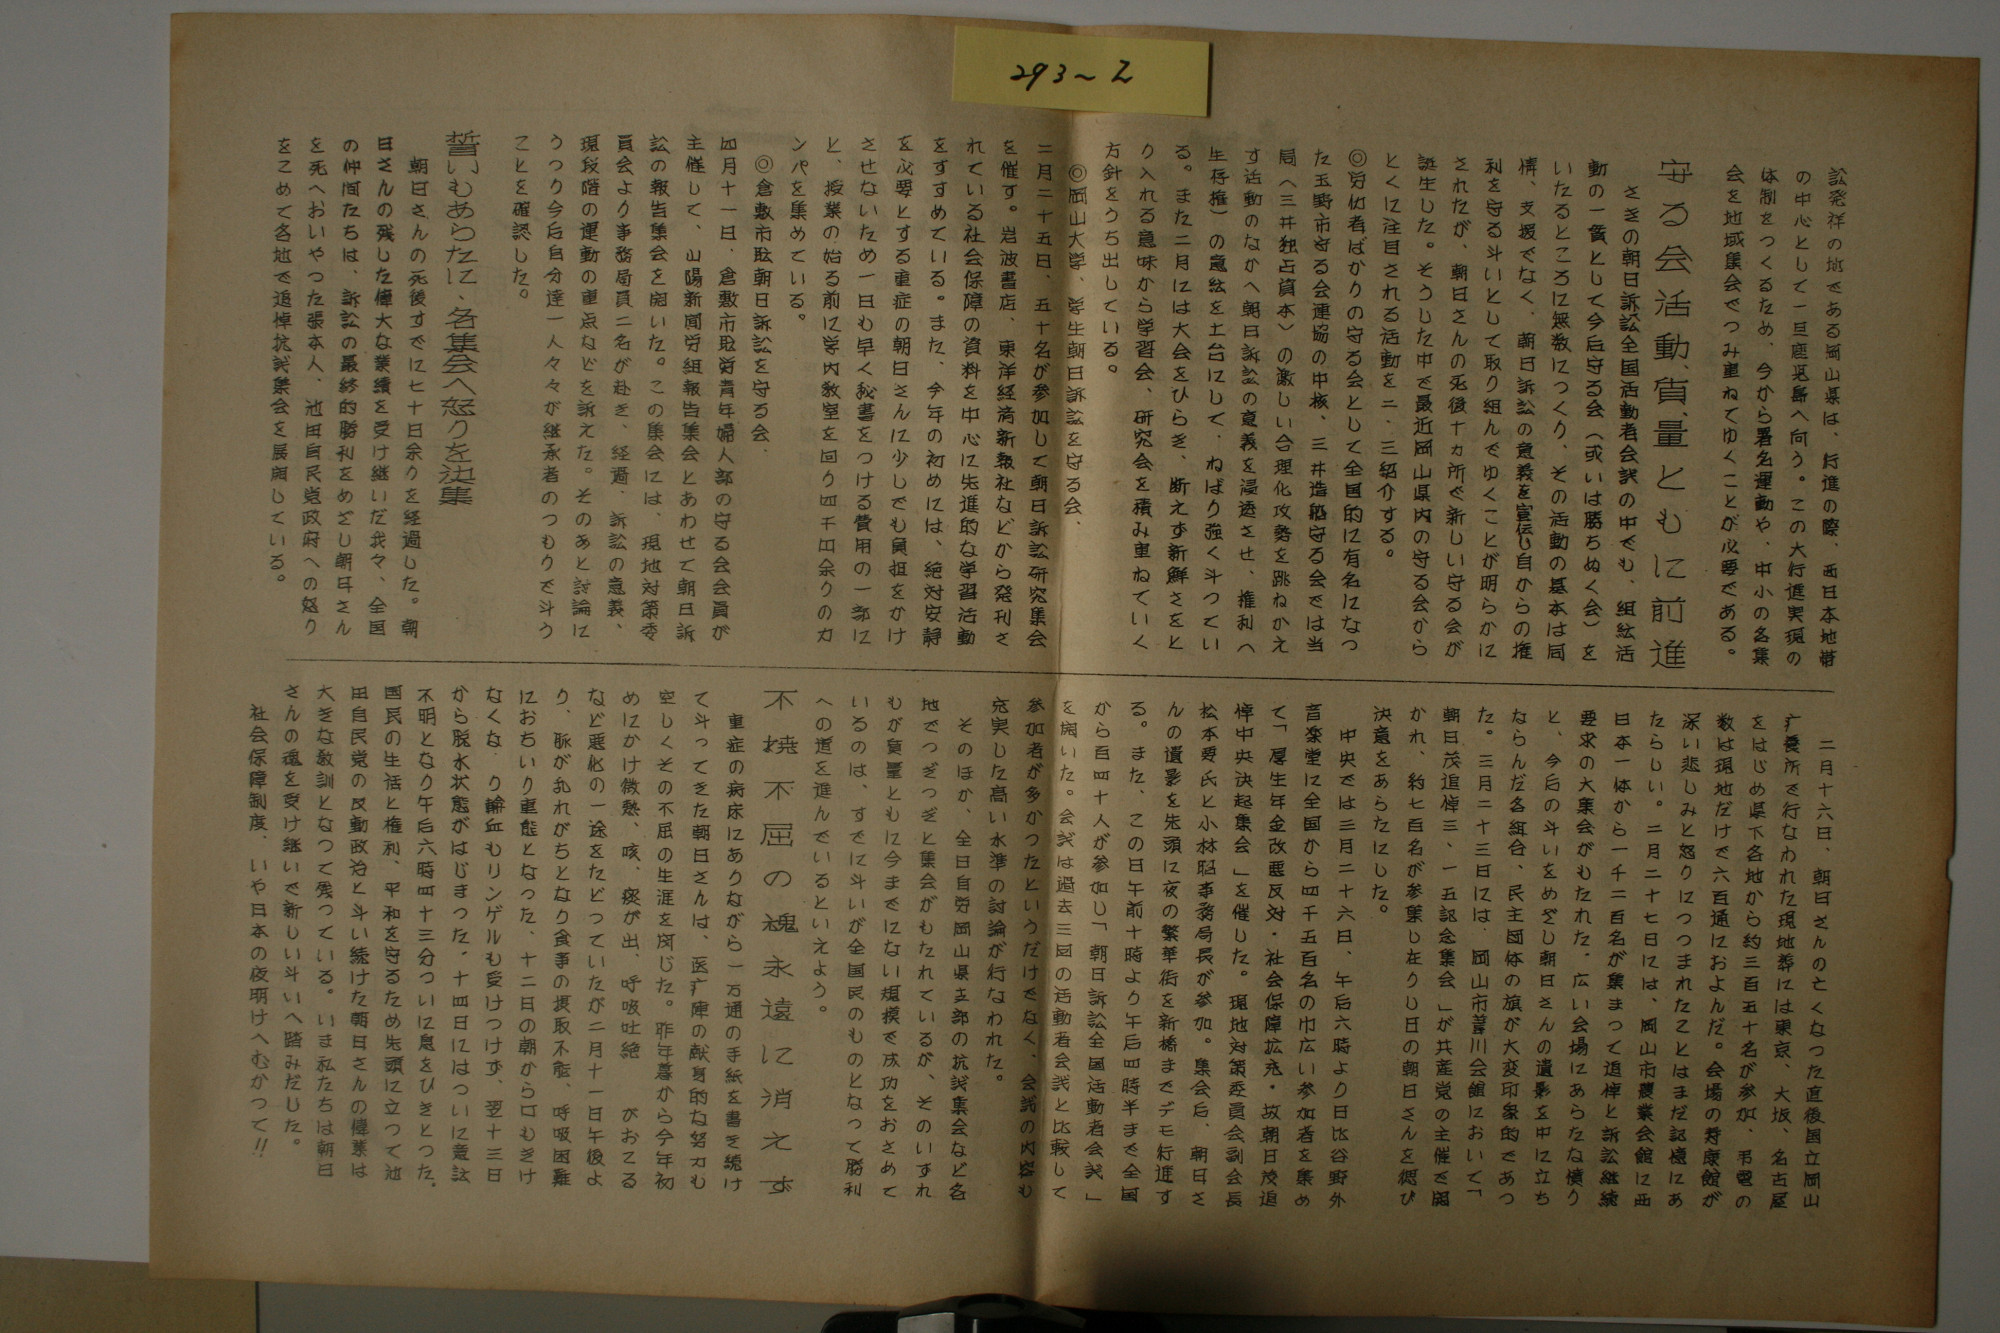 293~2
訟発祥の地である岡山県は、行進の際、西日本地帯
の中心として一旦鹿児島へ向う。この大行進実現の
体制をつくるため、今から署名運動や、中小の各集
会を地域集会でつみ重ねてゆくことが必要である。
守る会活動、質、量ともに前進
さきの朝日訴訟全国活動者会議の中でも、組紘活
動の一貫として今后守る会（或いは勝ちぬく会）を
いたるところに無数につくり、その活動の基本は同
情、支援でなく、朝日訴訟の意義を宣伝し自からの権
利を守る斗いとして取り組んでゆくことが明らかに
されたが、朝日さんの死後十ヵ所で新しい守る会が
誕生した。そうした中で最近岡山県内の守る会から
とくに注目される活動を二、三紹介する。
◎労仂者ばかりの守る会として全国的に有名になつ
た玉野市守る会連協の中核、三井造船守る会では当
局（三井独占資本）の激しい合理化攻勢を跳ねかえ
す活動のなかへ朝日訴訟の意義を浸透させ、権利へ
生存権）の意紘を土台にして、ねばり強く斗つてい
る。また二月には大会をひらき、断えず新鮮さをと
り入れる意味から学習会、研究会を積み重ねていく
方針をうち出している。
◎岡山大学、学生朝日訴訟を守る会、
二月二十五日、五十名が参加して朝日訴訟研究集会
を催す。岩波書店、東洋経済新報社などから発刊さ
れている社会保障の資料を中心に先進的な学習活動
をすすめている。また、今年の初めには、絶対安静
を必要とする重症の朝日さんに少しでも負担をかけ
させないため一日も早く秘書をつける費用の一部に
と、授業の始る前に学内教室を回り四千円余りのカ
ンパを集めている。
◎倉敷市耺朝日訴訟を守る会、
四月十一日、倉敷市耺労青年婦人部の守る会会員が
主催して、山陽新聞労組報告集会とあわせて朝日訴
訟の報告集会を開いた。この集会には、現地対策委
員会より事務局員二名が赴き、経過、訴訟の意義、
現段階の運動の重点などを訴えた。そのあと討論に
うつり今后自分達一人々々が継承者のつもりで斗う
ことを確認した。
誓いもあらたに、各集会へ怒りを決集
朝日さんの死後すでに七十日余りを経過した。朝
日さんの残した偉大な業績を受け継いだ我々、全国
の仲間たちは、訴訟の最終的勝利をめざし朝日さん
を死へおいやつた張本人、池田自民党政府への怒り
をこめて各地で追悼抗議集会を展開している。
二月十六日、朝日さんの亡くなつた直後国立岡山
疒養所で行なわれた現地葬には東京、大坂、名古屋
をはじめ県下各地から約三百五十名が参加、弔電の
数は現地だけで六百通におよんだ。会場の寿康館が
深い悲しみと怒りにつつまれたことはまだ記憶にあ
たらしい。二月二十七日には、岡山市農業会館に西
日本一体から一千二百名が集まつて追悼と訴訟継続
要求の大集会がもたれた。広い会場にあらたな憤り
と、今后の斗いをめざし朝日さんの遺影を中に立ち
ならんだ各組合、民主団体の旗が大変印象的であつ
た。三月二十三日には、岡山市葦川会館において「
朝日茂追悼三、一五記念集会」が共産党の主催で開
かれ、約七百名が参集し在りし日の朝日さんを偲び
決意をあらたにした。
中央では三月二十六日、午后六時より日比谷野外
音楽堂に全国から四千五百名の巾広い参加者を集め
て「厚生年金改悪反対・社会保障拡充・故朝日茂追
悼中央決起集会」を催した。現地対策委員会副会長
松本要氏と小林昭事務局長が参加。集会后、朝日さ
んの遺影を先頭に夜の繁華街を新橋までデモ行進す
る。また、この日午前十時より午后四時半まで全国
から百四十人が参加し「朝日訴訟全国活動者会議」
を開いた。会議は過去三回の活動者会議と比較して
参加者が多かつたというだけでなく、会議の内容も
充実した高い水準の討論が行なわれた。
そのほか、全日自労岡山県支部の抗議集会など各
地でつぎつぎと集会がもたれているが、そのいずれ
もが質量ともに今までにない規模で成功をおさめて
いるのは、すでに斗いが全国民のものとなつて勝利
への道を進んでいるといえよう。
不撓不屈の魂永遠に消えず
重症の病床にありながら一万通の手紙を書き続け
て斗つてきた朝日さんは、医疒陣の献身的な努力も
空しくその不屈の生涯を閉じた。昨年暮から今年初
めにかけ微熱、咳、痰が出、呼吸吐絶がおこる
など悪化の一途をたどつていたが二月十一日午後よ
り、脈が乱れがちとなり食事の摂取不能、呼吸困難
におちいり重態となつた、十二日の朝から口もきけ
なくなり輸血もリンゲルも受けつけず、翌十三日
から脱水状態がはじまつた。十四日にはついに意訟
不明となり午后六時四十三分ついに息をひきとつた。
国民の生活と権利、平和を守るため先頭に立つて池
田自民党の反動政治と斗い続けた朝日さんの偉業は
大きな教訓となつて残つている。いま私たちは朝日
さんの魂を受け継いで新しい斗いへ踏みだした。
社会保障制度、いや日本の夜明けへむかつて!!